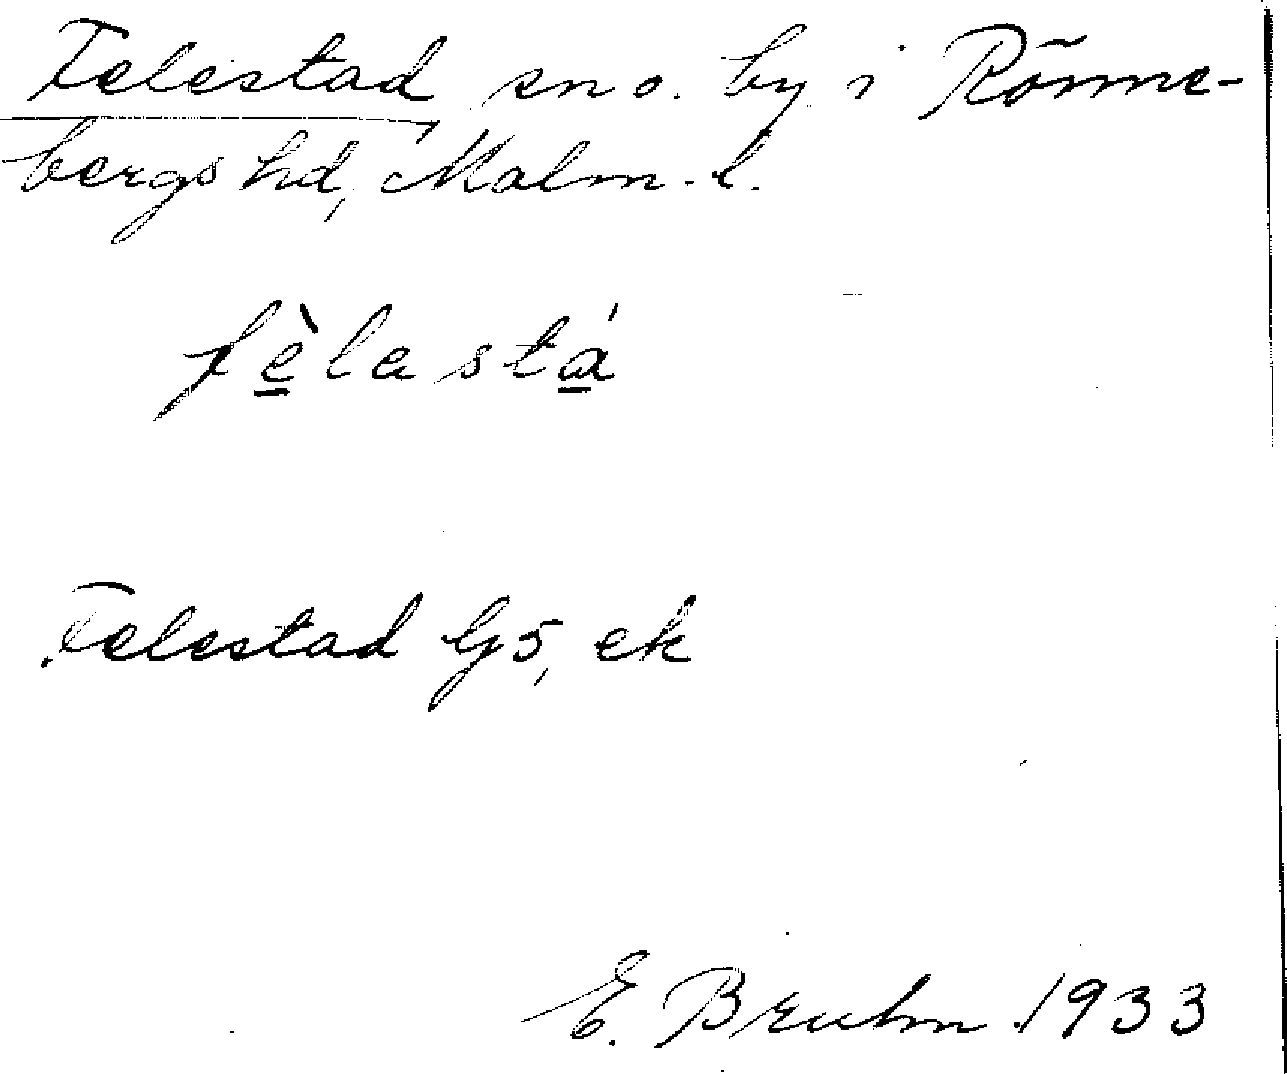 Felestad sn o. by i Rönne-
bergs hd, Malm. l.
fèlastá
Felestad G5, ek
E. Bruhn 1933